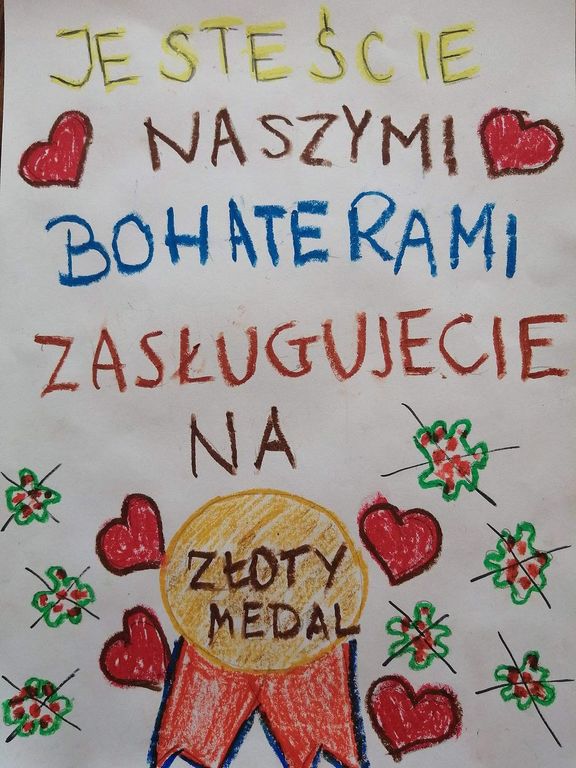 JESTEŚCIE
NASZYMI
BOHATERAMI
ZASŁUGUJECIE
NA
ZŁOTY
MEDAL